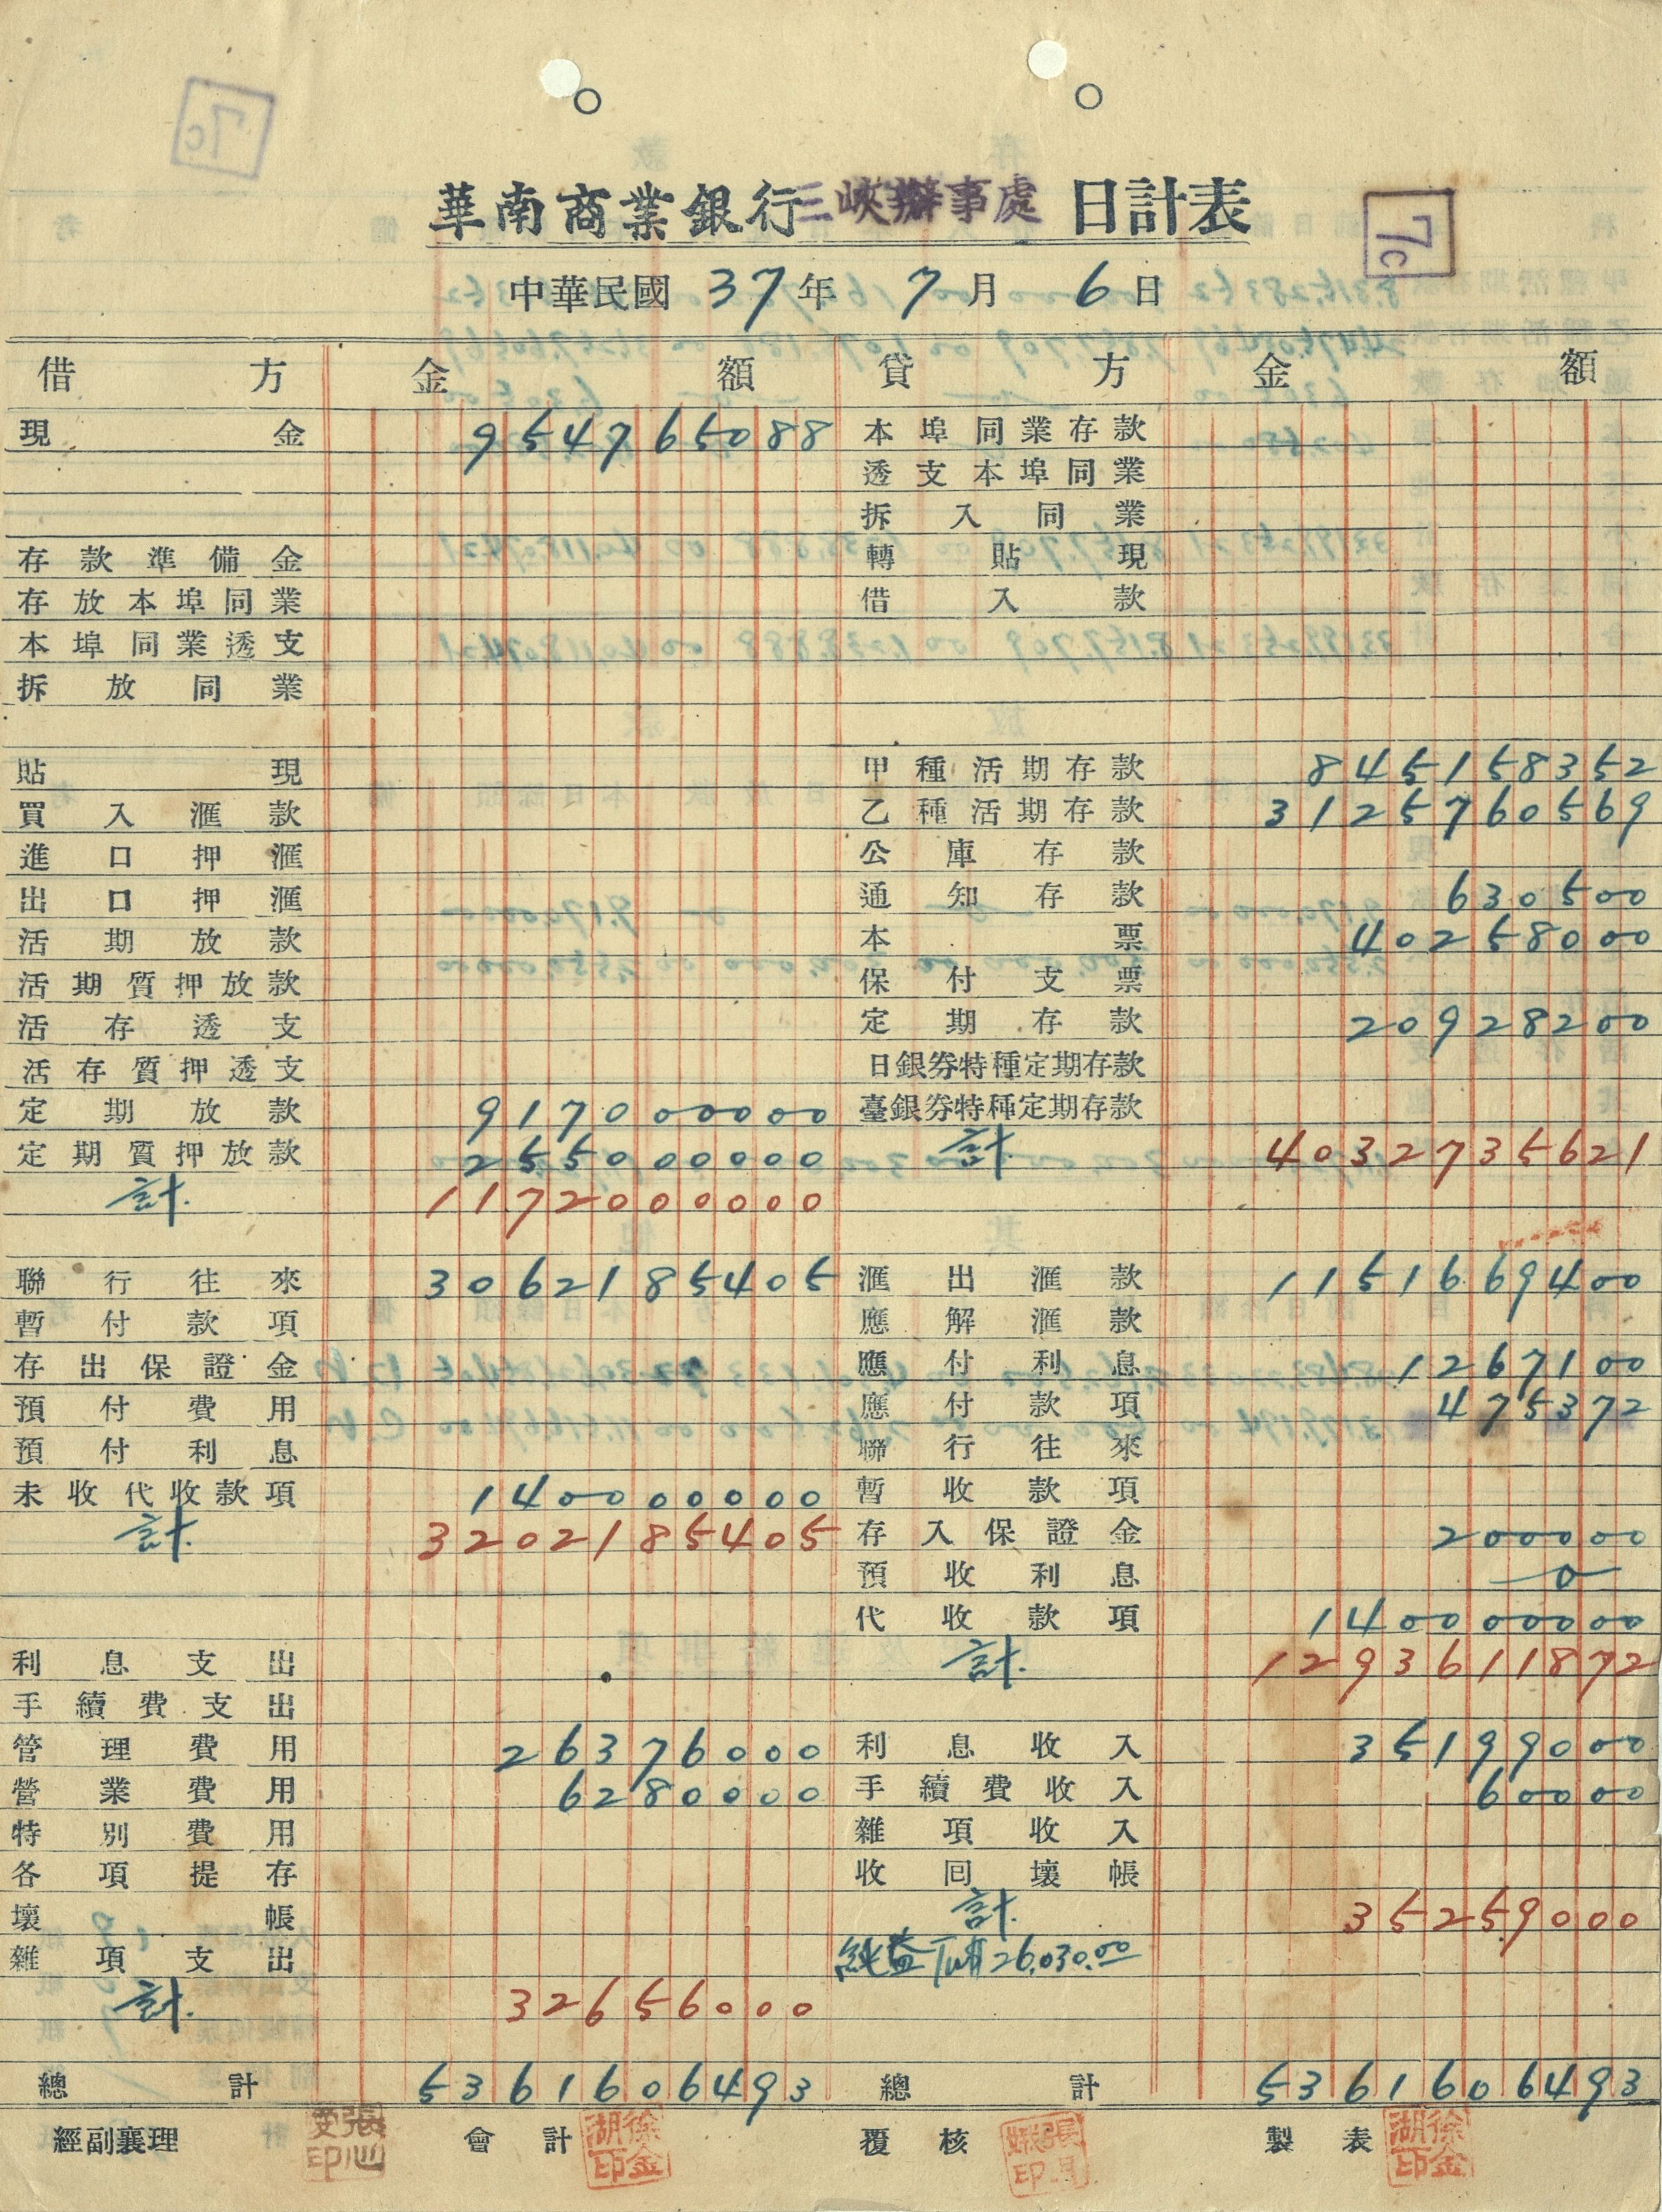 7c
7c
華南商業銀行三峽辦事處 日計表
中華民國 37 年 7 月 6 日
借方 金額 貸方 金額
現金 954765088 本埠同業存款
透支本埠同業
拆入同業
存款準備金 轉貼現
存放本埠同業 借入款
本埠同業透支
拆放同業
貼現 甲種活期存款 845158352
買入滙款 乙種活期存款 3125760569
進口押滙 公庫存款
出口押滙 通知存款 630500
活期放款 本票 40258000
活期質押放款 保付支票
活存透支 定期存款 20928200
活存質押透支 日銀券特種定期存款
定期放款 917000000 臺銀券特種定期存款
定期質押放款 255000000 計. 4032735621
計. 1172000000
聯行往來 3062185405 滙出滙款 1151669400
暫付款項 應解滙款
存出保證金 應付利息 1267100
預付費用 應付款項 475372
預付利息 聯行往來
未收代收款項 140000000 暫收款項
計. 3202185405 存入保證金 200000
預收利息 0
代收款項 140000000
利息支出 計. 1293611872
手續費支出
管理費用 26376000 利息收入 35199000
營業費用 6280000 手續費收入 60000
特別費用 雜項收入
各項提存 收回壞帳
壞帳 計. 35259000
雜項支出 純益 26,030.00
計. 32656000
總計 5361606493 總計 5361606493
經副襄理 會計 徐金湖印 覆核 製表 徐金湖印